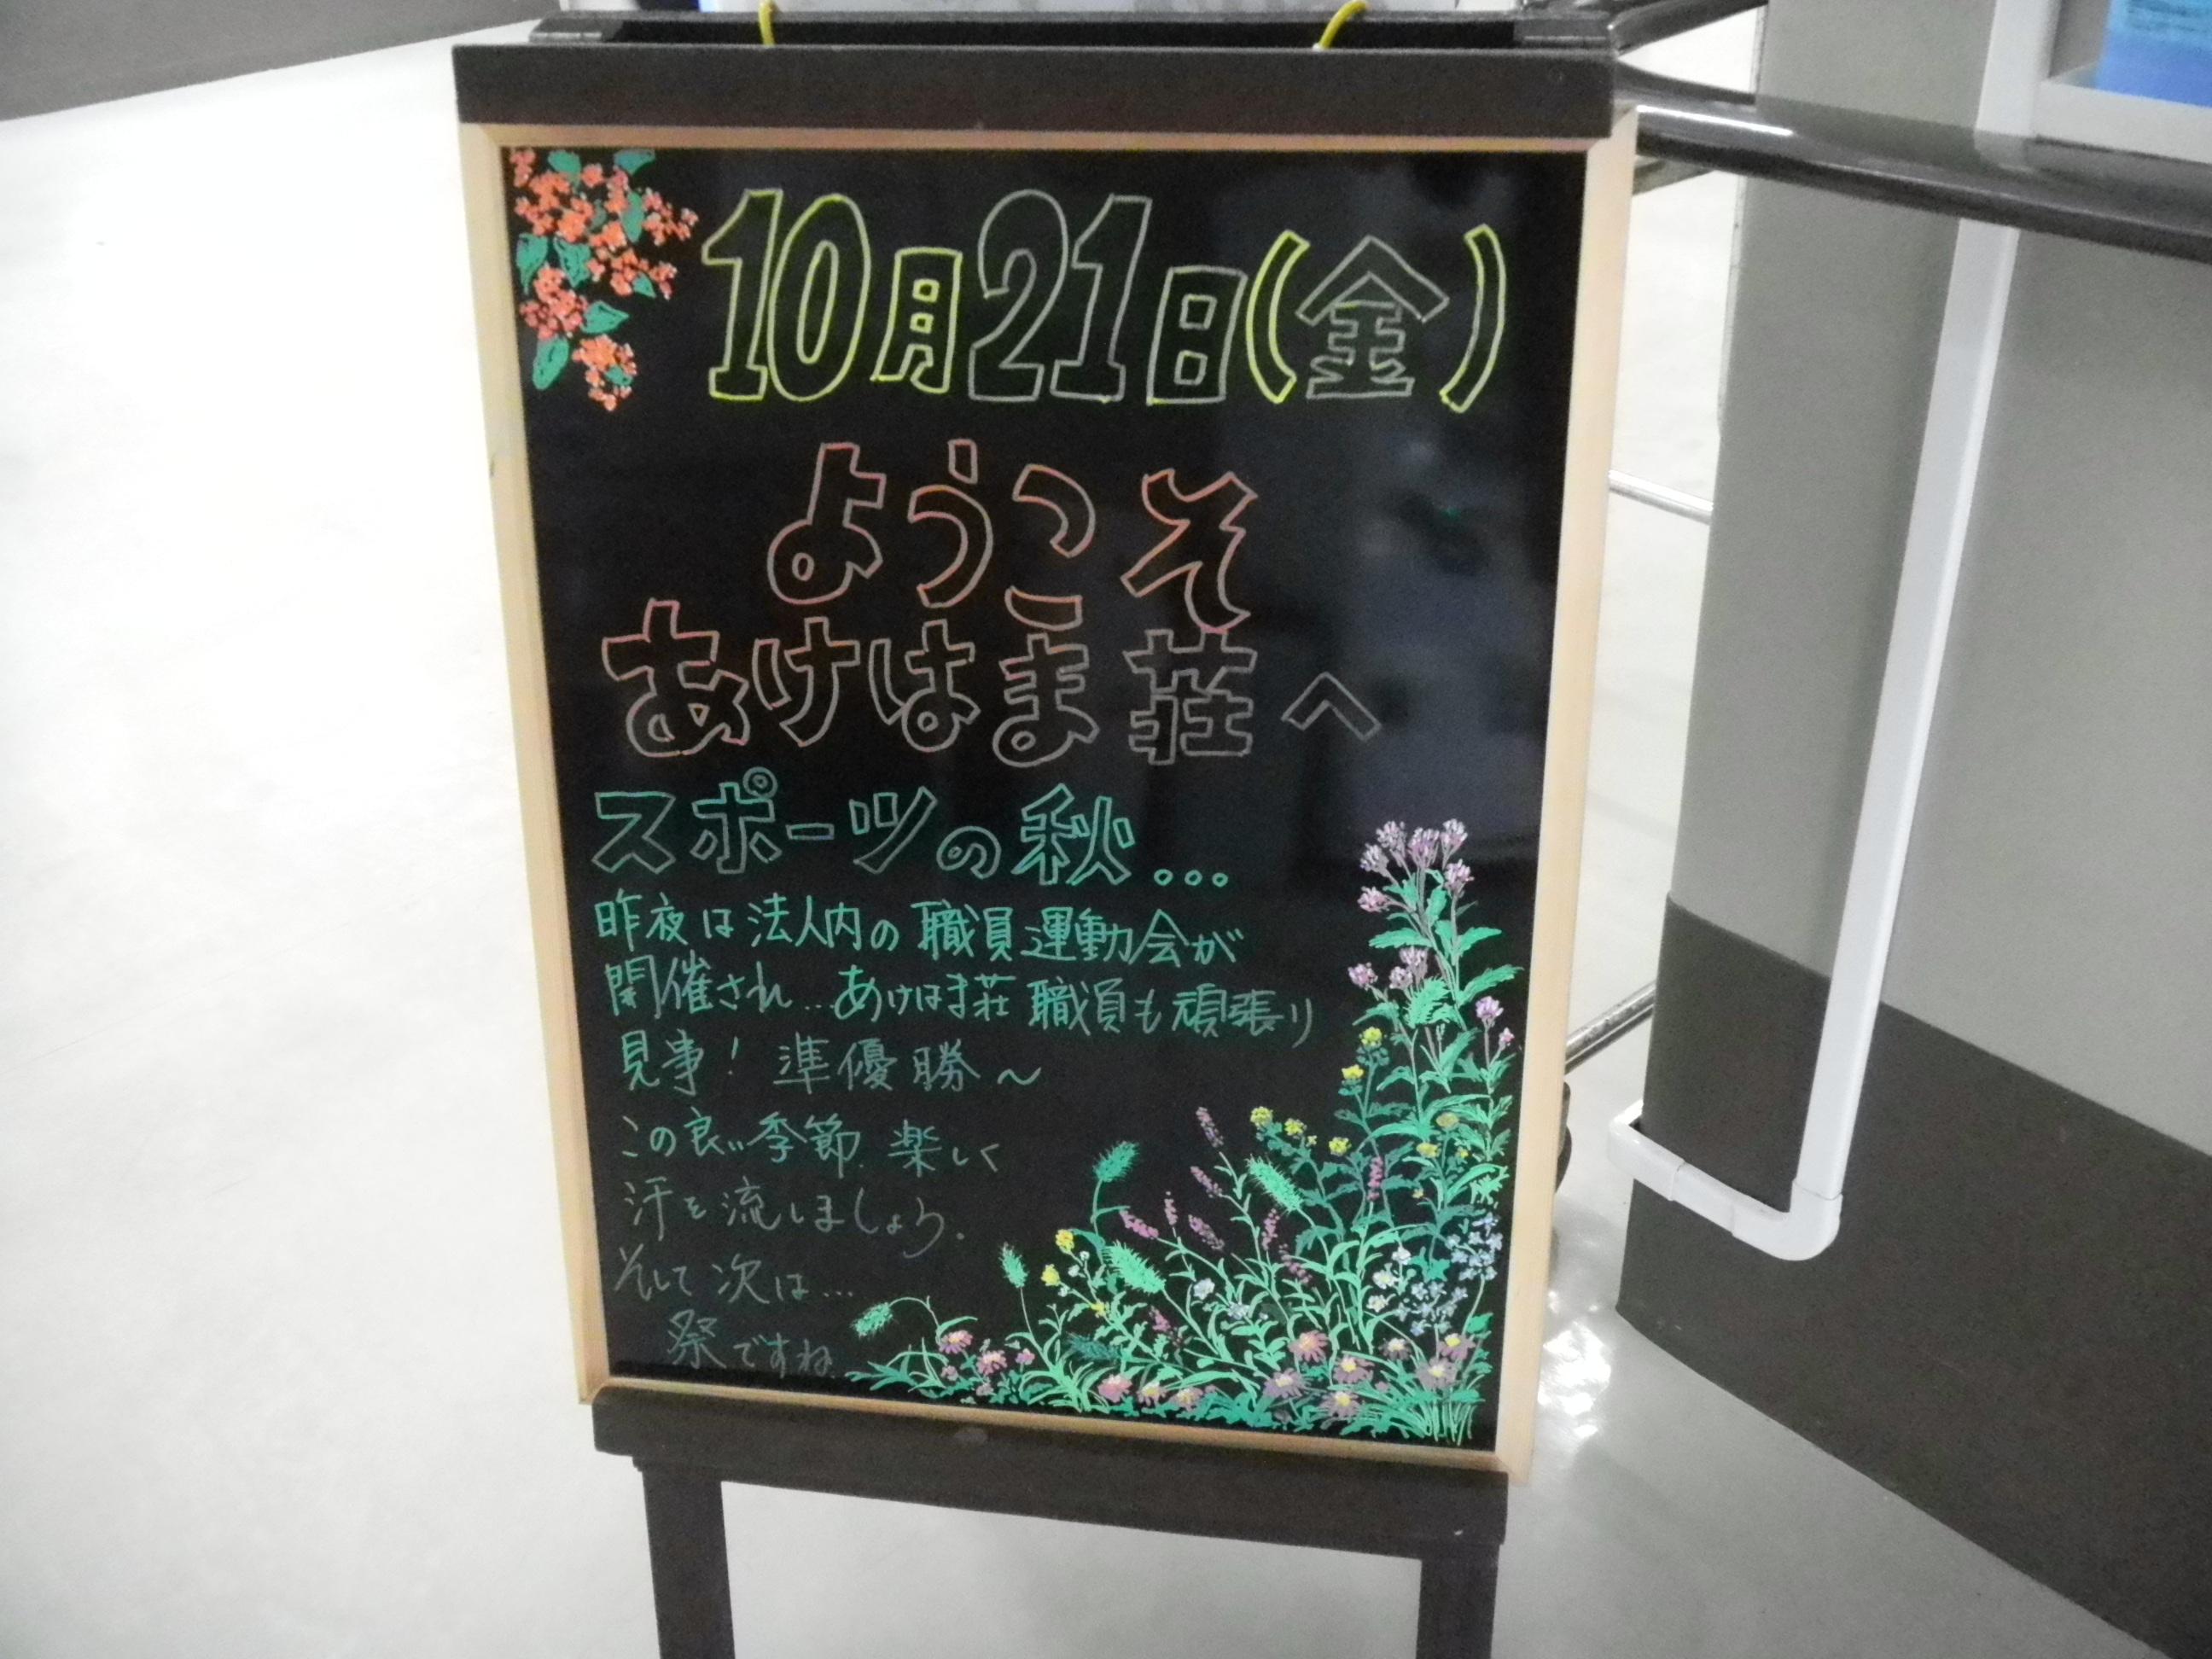 10月21日(金)
ようこそ
あけはま荘へ
スポーツの秋...
昨夜は法人内の職員運動会が
開催され...あけはま荘職員も頑張り
見事!準優勝~
この良い季節.楽しく
汗を流しましょう.
そして次は...
祭ですね.